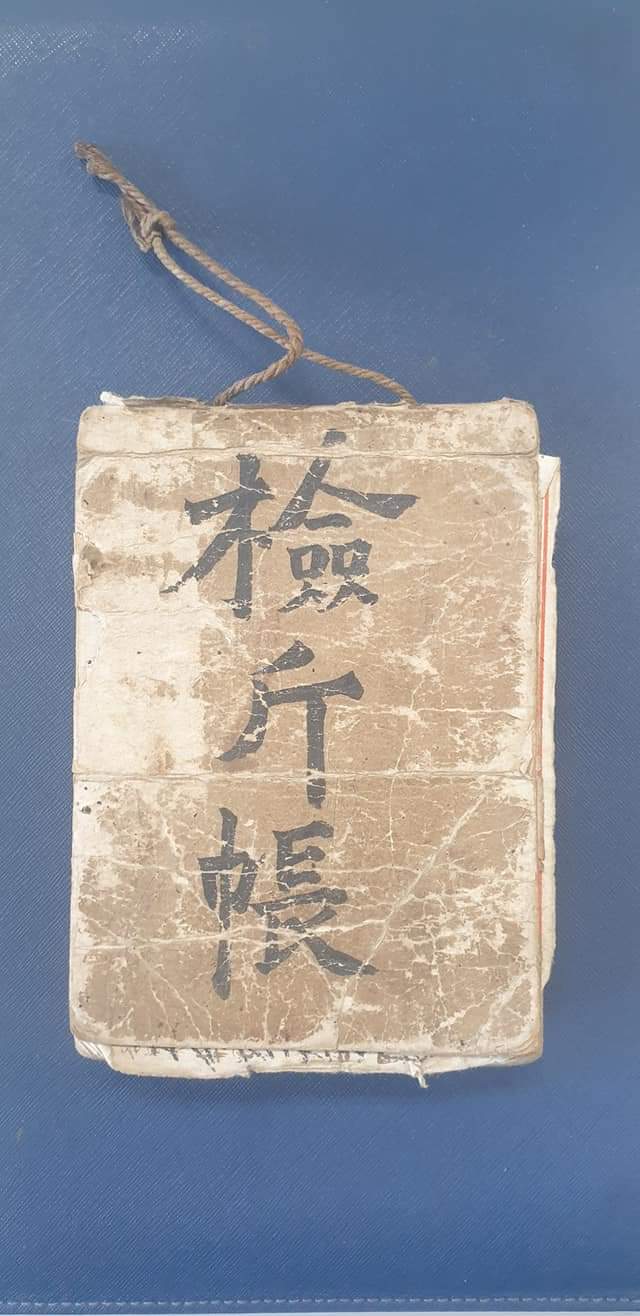 檢斤帳